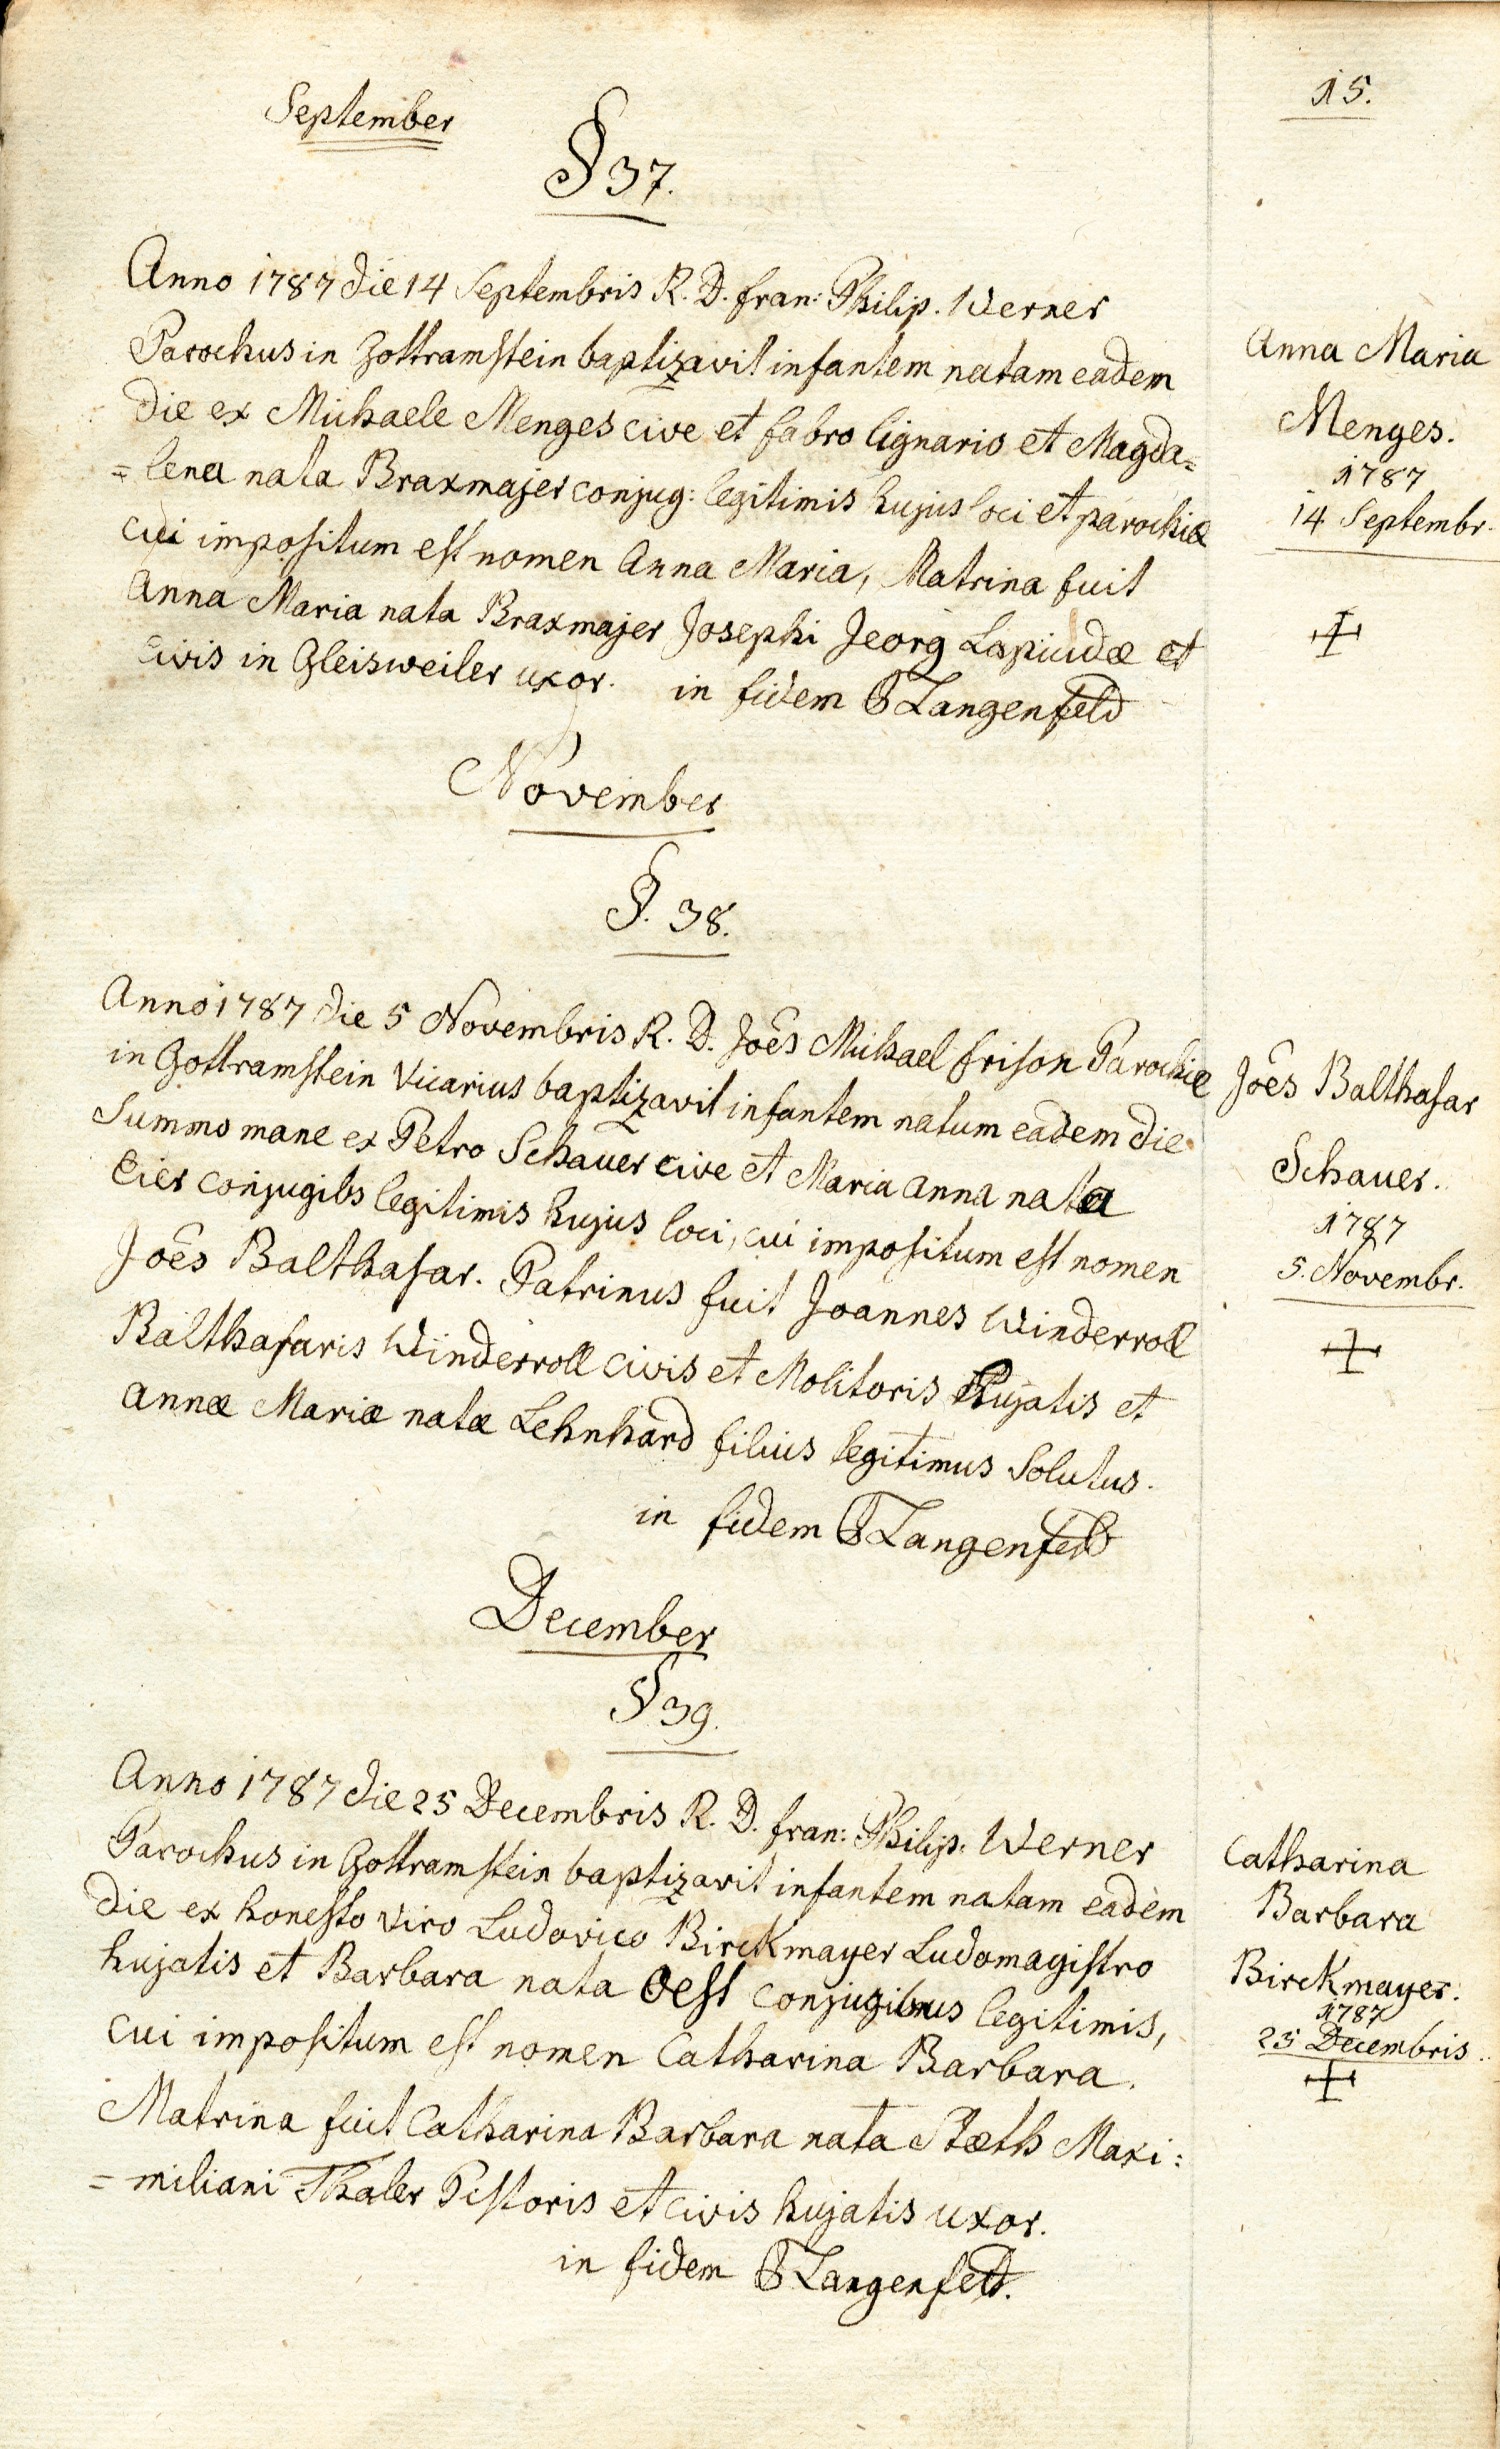 15.
September
§ 37.
Anno 1787 die 14 Septembris R. D. fran: Philip. Werner
Parochus in Gottramstein baptizavit infantem natam eadem
die ex Michaele Menges cive et fabro lignario et Magda=
=lena nata Braxmajer conjug: legitimis hujus loci et parochiæ
cui impositum est nomen Anna Maria, Matrina fuit
Anna Maria nata Braxmajer Josephi Jeorg Lapicidæ et
civis in Gleisweiler uxor. in fidem Langenfeld
Anna Maria
Menges.
1787
14 Septembr.
November
§. 38.
Anno 1787 die 5 Novembris R. D. Joês Michael frison Parochiæ
in Gottramstein Vicarius baptizavit infantem natum eadem die
summo mane ex Petro Schauer cive et Maria Anna nata
Eier conjugibs legitimis hujus loci, cui impositum est nomen
Joês Balthasar. Patrinus fuit Joannes Winderroll
Balthasaris Winderroll civis et Molitoris hujatis et
Annæ Mariæ natæ Lehnhard filius legitimus solutus.
in fidem Langenfeld
Joês Balthasar
Schauer.
1787
5. Novembr.
December
§ 39.
Anno 1787 die 25 Decembris R. D. fran: Philip. Werner
Parochus in Gottramstein baptizavit infantem natam eadem
die ex honesto viro Ludovico Birckmayer Ludomagistro
hujatis et Barbara nata Oest conjugibus legitimis,
cui impositum est nomen Catharina Barbara.
Matrina fuit Catharina Barbara nata Stæth Maxi:
=miliani Thaler Pistoris et civis hujatis uxor.
in fidem Langenfeld.
Catharina
Barbara
Birckmayer.
1787
25 Decembris.